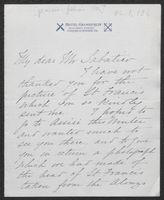 HOTEL GRANSFIELD
My dear Mr Sabatier
I have not
thanked you for the
picture of St Francis
which you so kindly
sent me. I hoped to
go to Assisi this winter
and wanted much to
see you there and to give
you in return a photograph
which we had made of
the head of St Francis
taken from the